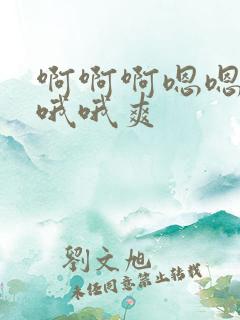 啊啊啊嗯嗯
哦哦爽
劉文旭
未经同意禁止转载